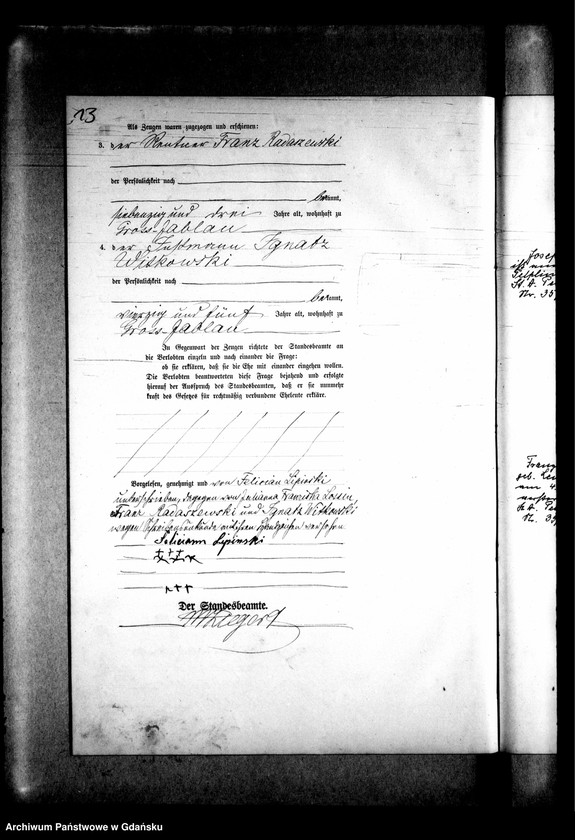 13
Als Zeugen waren zugezogen und erschienen:
3. der Rentner Franz Radaszewski
der Persönlichkeit nach
bekannt,
siebenzig und drei Jahre alt, wohnhaft zu
Gross-Jablau
4. der Instmann Ignatz
Witkowski
der Persönlichkeit nach
bekannt,
vierzig und fünf Jahre alt, wohnhaft zu
Gross-Jablau
In Gegenwart der Zeugen richtete der Standesbeamte an
die Verlobten einzeln und nach einander die Frage:
ob sie erklären, daß sie die Ehe mit einander eingehen wollen.
Die Verlobten beantworteten diese Frage bejahend und erfolgte
hierauf der Ausspruch des Standesbeamten, daß er sie nunmehr
kraft des Gesetzes für rechtmäßig verbundene Eheleute erkläre.
Vorgelesen, genehmigt und von Felician Lipinski
unterschrieben, dagegen von Julianna Franciska Lossin,
Franz Radaszewski und Ignatz Witkowski
wegen Schreibensunkunde mit ihren Handzeichen versehen.
Feliciann Lipinski
+++
+++
Der Standesbeamte.
Josep
ist am
Pelplin
St. A. Pe
Nr. 35
Franz
geb. Le
am 4.
St. A. Pe
N. 39
Archiwum Państwowe w Gdańsku